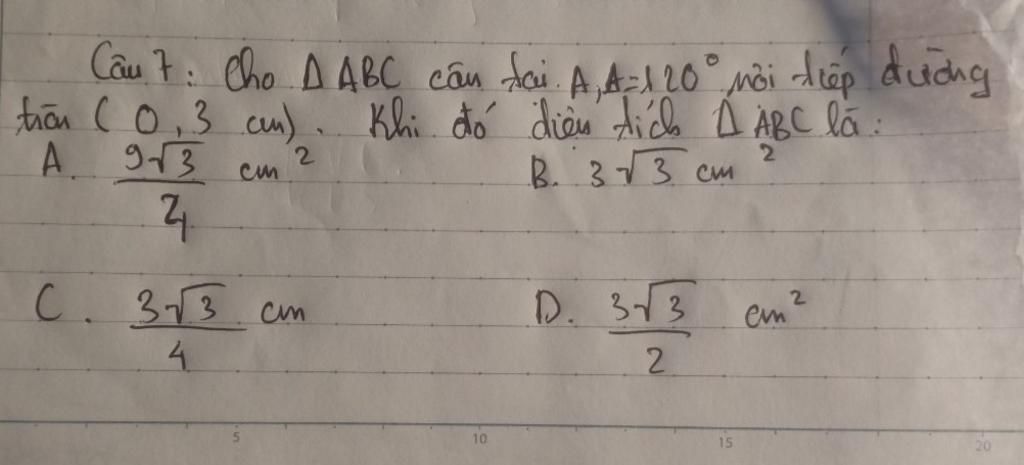 Câu 7: Cho Δ ABC cân tại A, A=120° nội tiếp đường
tròn (O, 3 cm). Khi đó diện tích Δ ABC là:
A. 9√3/4 cm² B. 3√3 cm²
C. 3√3/4 cm D. 3√3/2 cm²
5 10 15 20